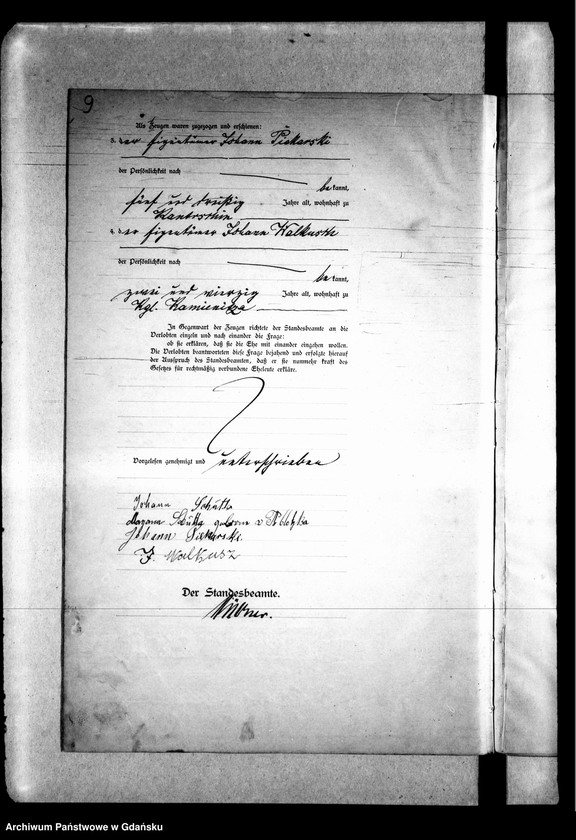 9
Als Zeugen waren zugezogen und erschienen:
3. der Eigentümer Johann Piekarski
der Persönlichkeit nach
be kannt,
fünf und dreißig Jahre alt, wohnhaft zu
4. der Eigentümer Johann
der Persönlichkeit nach
be kannt,
zwei und vierzig Jahre alt, wohnhaft zu
Kgl. Kamienitza
In Gegenwart der Zeugen richtete der Standesbeamte an die
Verlobten einzeln und nach einander die Frage:
ob sie erklären, daß sie die Ehe mit einander eingehen wollen.
Die Verlobten beantworteten diese Frage bejahend und erfolgte hierauf
der Ausspruch des Standesbeamten, daß er sie nunmehr kraft des
Gesetzes für rechtmäßig verbundene Eheleute erkläre.
Vorgelesen genehmigt und unterschrieben
Johann Schutta
geborne v
Johann Piekarski.
J. Walkusz
Der Standesbeamte.
Archiwum Państwowe w Gdańsku